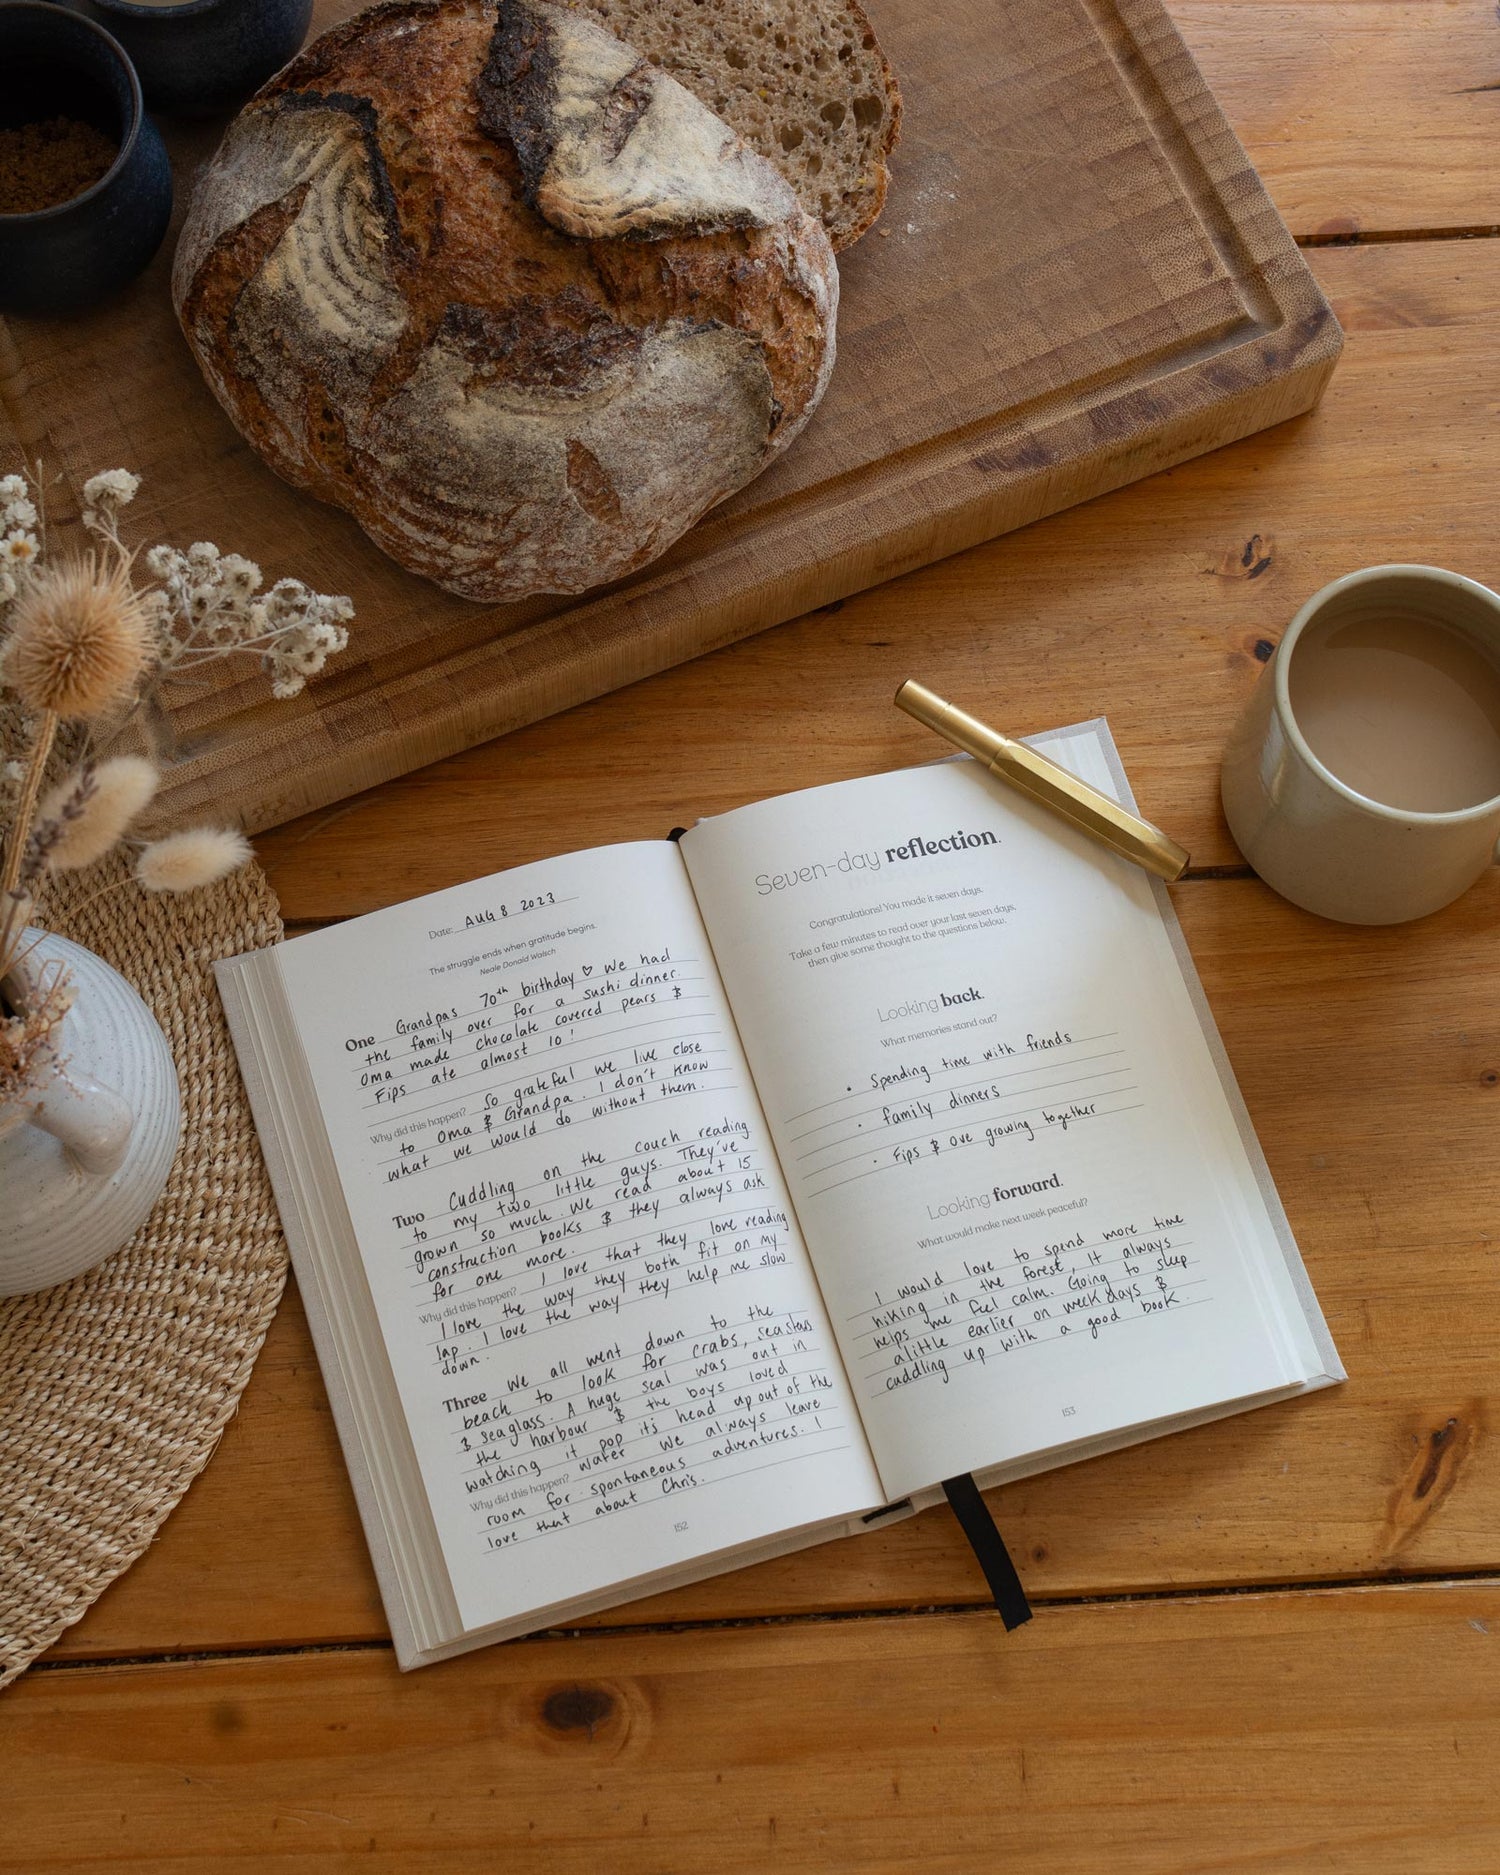 Date: AUG 8 2023
The struggle ends when gratitude begins.
Neale Donald Walsch
One Grandpas 70th birthday ♡ We had
the family over for a sushi dinner.
Oma made chocolate covered pears &
Fips ate almost 10!
Why did this happen? So grateful we live close
to Oma & Grandpa. I don't know
what we would do without them.
Two Cuddling on the couch reading
to my two little guys. They've
grown so much. We read about 15
construction books & they always ask
for one more.
Why did this happen? I love that they love reading
I love the way they both fit on my
lap. I love the way they help me slow
down.
Three We all went down to the
beach to look for crabs, seastars
& seaglass. A huge seal was out in
the harbour & the boys loved
watching it pop it's head up out of the
Why did this happen? water We always leave
room for spontaneous adventures. I
love that about Chris.
152
Seven-day reflection.
Congratulations! You made it seven days.
Take a few minutes to read over your last seven days,
then give some thought to the questions below.
Looking back.
What memories stand out?
• Spending time with friends
• family dinners
• Fips & Ove growing together
Looking forward.
What would make next week peaceful?
I would love to spend more time
hiking in the forest, It always
helps me feel calm. Going to sleep
a little earlier on weekdays &
cuddling up with a good book.
153